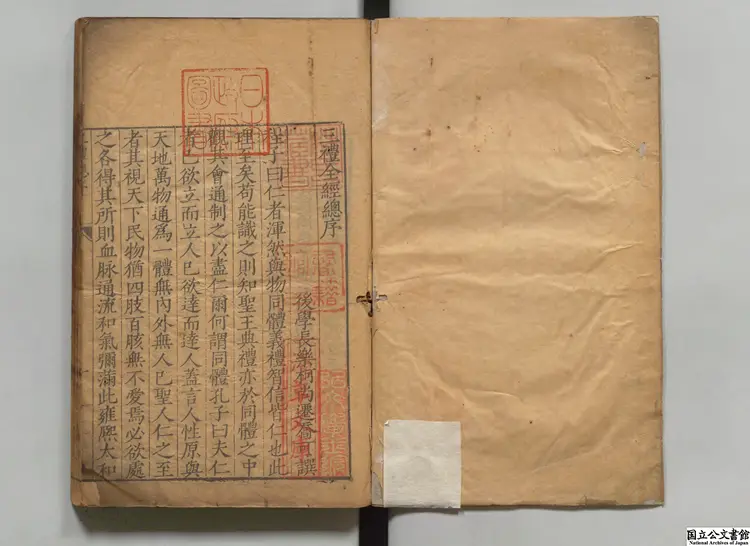 三禮全經總序
後學長樂柯尚遷 可譔
程子曰仁者渾然與物同體義禮智信皆仁也此
理至矣苟能識之則知聖王典禮亦於同體之中
觀其會通制之以盡仁爾何謂同體孔子曰夫仁
者已欲立而立人已欲達而達人蓋言人性原與
天地萬物通爲一體無內外無人已聖人仁之至
者其視天下民物猶四肢百骸無不愛焉必欲處
之各得其所則血脉通流和氣彌滿此雍熙太和
日本
政府
圖書
國立公文書館
National Archives of Japan